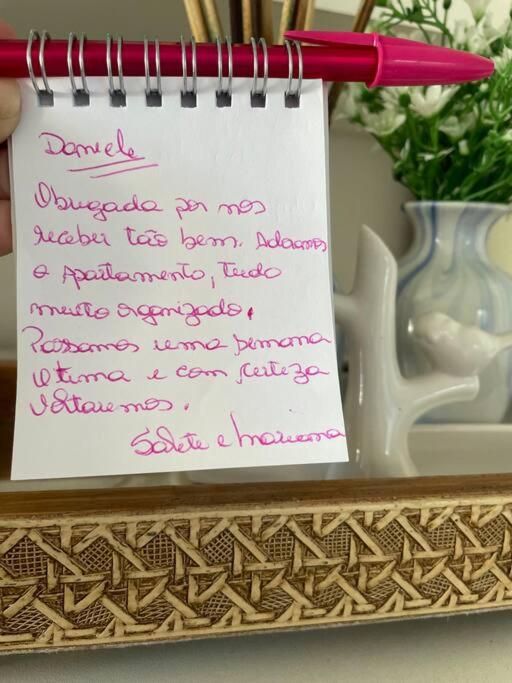 Daniele
Obrigada por nos
receber tão bem. Adoramos
o Apartamento, tudo
muito organizado.
Passamos uma semana
otima e com certeza
voltaremos.
Salete e Mariana